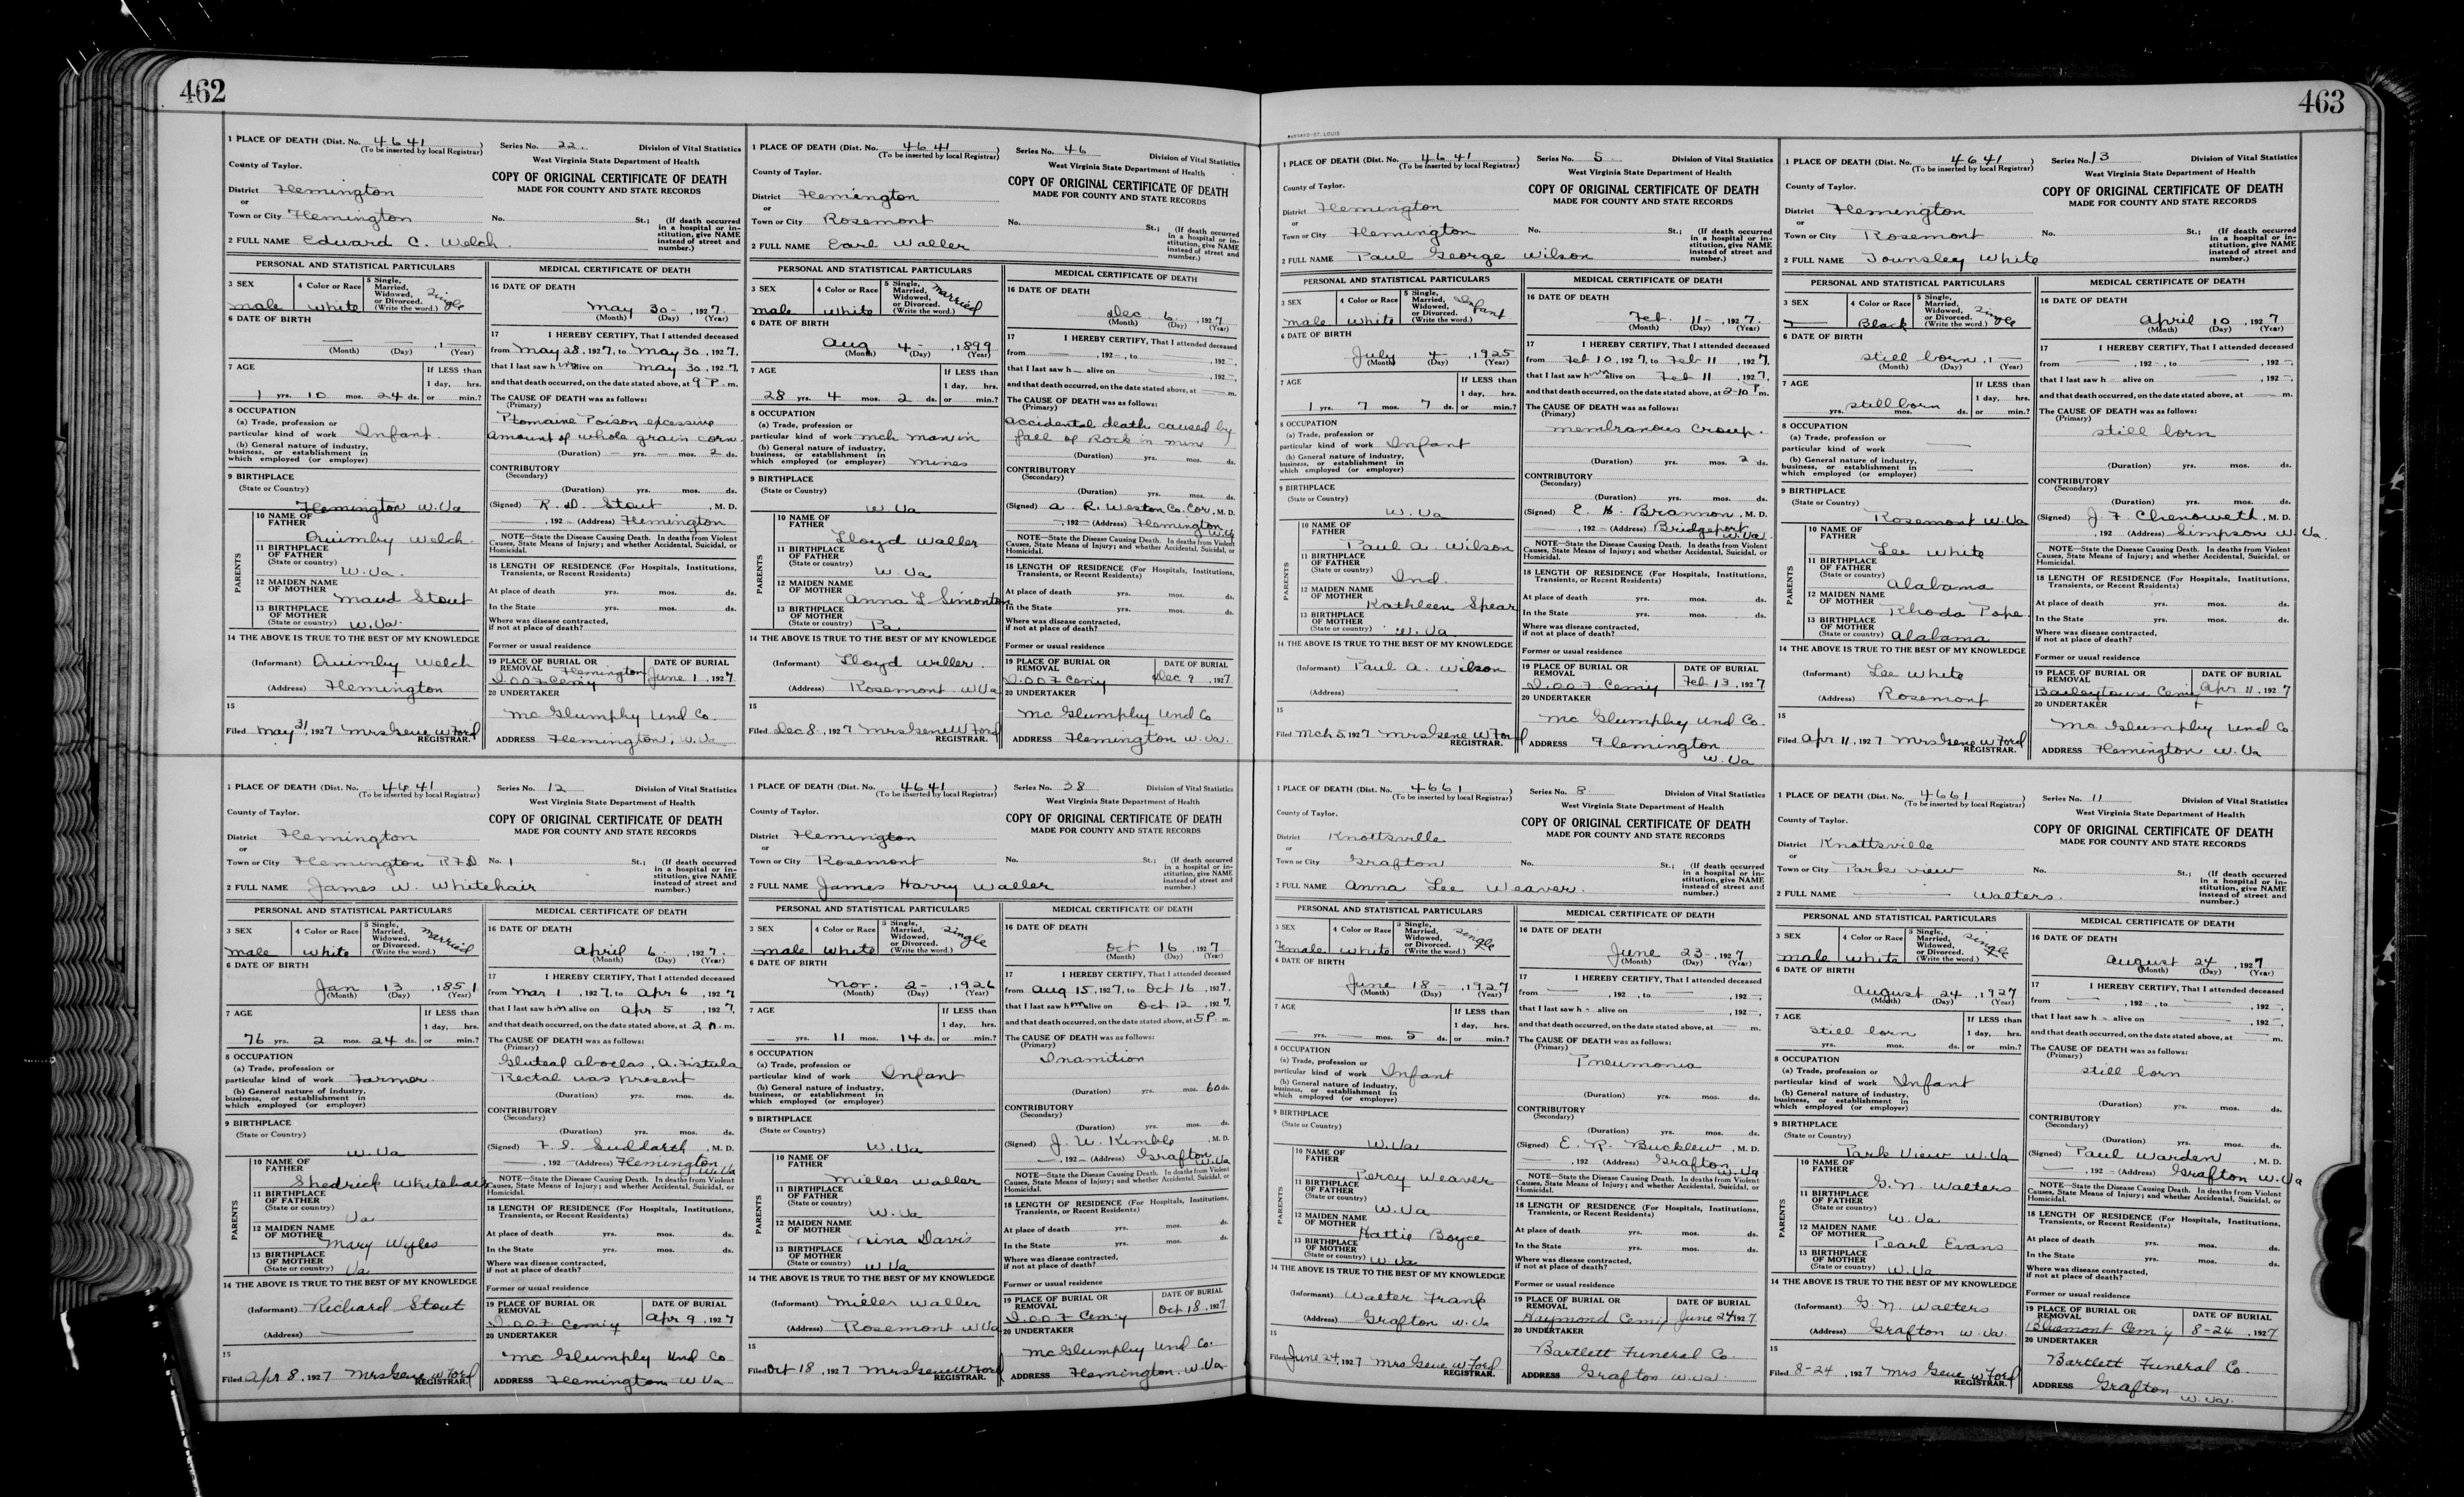 462
1 PLACE OF DEATH (Dist. No. 4641)
(To be inserted by local Registrar)
Series No. 22.
Division of Vital Statistics
County of Taylor.
West Virginia State Department of Health
COPY OF ORIGINAL CERTIFICATE OF DEATH
MADE FOR COUNTY AND STATE RECORDS
District Flemington
or
Town or City Flemington
No. St.; (If death occurred in a hospital or institution, give NAME instead of street and number.)
2 FULL NAME Edward C. Welch.
PERSONAL AND STATISTICAL PARTICULARS
3 SEX male
4 Color or Race white
5 Single, Married, Widowed, or Divorced. (Write the word.) single
6 DATE OF BIRTH
— — , 1 —
(Month) (Day) (Year)
7 AGE
If LESS than 1 day, hrs. or min.?
1 yrs. 10 mos. 24 ds.
8 OCCUPATION
(a) Trade, profession or particular kind of work Infant.
(b) General nature of industry, business, or establishment in which employed (or employer)
9 BIRTHPLACE
(State or Country)
Flemington W. Va
PARENTS
10 NAME OF FATHER Quimby Welch.
11 BIRTHPLACE OF FATHER (State or country) W. Va.
12 MAIDEN NAME OF MOTHER Maud Stout
13 BIRTHPLACE OF MOTHER (State or country) W. Va.
14 THE ABOVE IS TRUE TO THE BEST OF MY KNOWLEDGE
(Informant) Quimby Welch
(Address) Flemington
15
Filed May 31, 1927 Mrs Gene W Ford
REGISTRAR.
MEDICAL CERTIFICATE OF DEATH
16 DATE OF DEATH
May 30 - , 1927.
(Month) (Day) (Year)
17 I HEREBY CERTIFY, That I attended deceased
from May 28, 1927, to May 30, 1927,
that I last saw him alive on May 30, 1927,
and that death occurred, on the date stated above, at 9 P. m.
The CAUSE OF DEATH was as follows:
(Primary)
Ptomaine Poison excessive
amount of whole grain corn.
(Duration) — yrs. — mos. 2 ds.
CONTRIBUTORY
(Secondary)
(Duration) yrs. mos. ds.
(Signed) R. D. Stout, M. D.
, 192 - (Address) Flemington
NOTE—State the Disease Causing Death. In deaths from Violent Causes, State Means of Injury; and whether Accidental, Suicidal, or Homicidal.
18 LENGTH OF RESIDENCE (For Hospitals, Institutions, Transients, or Recent Residents)
At place of death yrs. mos. ds.
In the State yrs. mos. ds.
Where was disease contracted, if not at place of death?
Former or usual residence
19 PLACE OF BURIAL OR REMOVAL Flemington I.O.O.F. Cem'y
DATE OF BURIAL June 1, 1927
20 UNDERTAKER
Mc Glumphy Und Co.
ADDRESS Flemington, W. Va
1 PLACE OF DEATH (Dist. No. 4641)
(To be inserted by local Registrar)
Series No. 46
Division of Vital Statistics
County of Taylor.
West Virginia State Department of Health
COPY OF ORIGINAL CERTIFICATE OF DEATH
MADE FOR COUNTY AND STATE RECORDS
District Flemington
or
Town or City Rosemont
No. St.; (If death occurred in a hospital or institution, give NAME instead of street and number.)
2 FULL NAME Earl Waller
PERSONAL AND STATISTICAL PARTICULARS
3 SEX male
4 Color or Race white
5 Single, Married, Widowed, or Divorced. (Write the word.) married
6 DATE OF BIRTH
Aug 4 - , 1899
(Month) (Day) (Year)
7 AGE
If LESS than 1 day, hrs. or min.?
28 yrs. 4 mos. 2 ds.
8 OCCUPATION
(a) Trade, profession or particular kind of work mch man in
(b) General nature of industry, business, or establishment in which employed (or employer) mines
9 BIRTHPLACE
(State or Country)
W Va
PARENTS
10 NAME OF FATHER Lloyd Waller
11 BIRTHPLACE OF FATHER (State or country) W. Va
12 MAIDEN NAME OF MOTHER Anna L Simonton
13 BIRTHPLACE OF MOTHER (State or country) Pa
14 THE ABOVE IS TRUE TO THE BEST OF MY KNOWLEDGE
(Informant) Lloyd Waller.
(Address) Rosemont W Va
15
Filed Dec 8 - , 1927 Mrs Gene W Ford
REGISTRAR.
MEDICAL CERTIFICATE OF DEATH
16 DATE OF DEATH
Dec. 6. , 1927
(Month) (Day) (Year)
17 I HEREBY CERTIFY, That I attended deceased
from — , 192 -, to — , 192 -,
that I last saw h — alive on — , 192 -,
and that death occurred, on the date stated above, at — m.
The CAUSE OF DEATH was as follows:
(Primary)
accidental death caused by
fall of Rock in mine
(Duration) yrs. mos. ds.
CONTRIBUTORY
(Secondary)
(Duration) yrs. mos. ds.
(Signed) A. R. Weston Co. Cor, M. D.
, 192 - (Address) Flemington W. Va
NOTE—State the Disease Causing Death. In deaths from Violent Causes, State Means of Injury; and whether Accidental, Suicidal, or Homicidal.
18 LENGTH OF RESIDENCE (For Hospitals, Institutions, Transients, or Recent Residents)
At place of death yrs. mos. ds.
In the State yrs. mos. ds.
Where was disease contracted, if not at place of death?
Former or usual residence
19 PLACE OF BURIAL OR REMOVAL I.O.O.F Cem'y
DATE OF BURIAL Dec 9, 1927
20 UNDERTAKER
Mc Glumphy Und Co
ADDRESS Flemington W. Va.
1 PLACE OF DEATH (Dist. No. 4641)
(To be inserted by local Registrar)
Series No. 12
Division of Vital Statistics
County of Taylor.
West Virginia State Department of Health
COPY OF ORIGINAL CERTIFICATE OF DEATH
MADE FOR COUNTY AND STATE RECORDS
District Flemington
or
Town or City Flemington R.F.D.
No. 1 St.; (If death occurred in a hospital or institution, give NAME instead of street and number.)
2 FULL NAME James W. Whitehair
PERSONAL AND STATISTICAL PARTICULARS
3 SEX male
4 Color or Race white
5 Single, Married, Widowed, or Divorced. (Write the word.) married
6 DATE OF BIRTH
Jan 13 , 1851
(Month) (Day) (Year)
7 AGE
If LESS than 1 day, hrs. or min.?
76 yrs. 2 mos. 24 ds.
8 OCCUPATION
(a) Trade, profession or particular kind of work Farmer.
(b) General nature of industry, business, or establishment in which employed (or employer)
9 BIRTHPLACE
(State or Country)
W. Va
PARENTS
10 NAME OF FATHER Shedrick Whitehair
11 BIRTHPLACE OF FATHER (State or country) Va
12 MAIDEN NAME OF MOTHER Mary Wyles
13 BIRTHPLACE OF MOTHER (State or country) Va
14 THE ABOVE IS TRUE TO THE BEST OF MY KNOWLEDGE
(Informant) Richard Stout
(Address) —
15
Filed Apr 8, 1927 Mrs Gene W Ford
REGISTRAR.
MEDICAL CERTIFICATE OF DEATH
16 DATE OF DEATH
April 6 - , 1927.
(Month) (Day) (Year)
17 I HEREBY CERTIFY, That I attended deceased
from Mar 1, 1927, to Apr 6, 1927
that I last saw him alive on Apr 5, 1927,
and that death occurred, on the date stated above, at 2 m.
The CAUSE OF DEATH was as follows:
(Primary)
Gluteal abscess, A. Fistula
Rectal was present
(Duration) yrs. mos. ds.
CONTRIBUTORY
(Secondary)
(Duration) yrs. mos. ds.
(Signed) F. S. Suddarth, M. D.
, 192 - (Address) Flemington W. Va
NOTE—State the Disease Causing Death. In deaths from Violent Causes, State Means of Injury; and whether Accidental, Suicidal, or Homicidal.
18 LENGTH OF RESIDENCE (For Hospitals, Institutions, Transients, or Recent Residents)
At place of death yrs. mos. ds.
In the State yrs. mos. ds.
Where was disease contracted, if not at place of death?
Former or usual residence
19 PLACE OF BURIAL OR REMOVAL I.O.O.F Cem'y
DATE OF BURIAL Apr 9, 1927
20 UNDERTAKER
Mc Glumphy Und Co
ADDRESS Flemington W Va
1 PLACE OF DEATH (Dist. No. 4641)
(To be inserted by local Registrar)
Series No. 38
Division of Vital Statistics
County of Taylor.
West Virginia State Department of Health
COPY OF ORIGINAL CERTIFICATE OF DEATH
MADE FOR COUNTY AND STATE RECORDS
District Flemington
or
Town or City Rosemont
No. St.; (If death occurred in a hospital or institution, give NAME instead of street and number.)
2 FULL NAME James Harry Waller
PERSONAL AND STATISTICAL PARTICULARS
3 SEX male
4 Color or Race white
5 Single, Married, Widowed, or Divorced. (Write the word.) single
6 DATE OF BIRTH
Nov. 2 - , 1926
(Month) (Day) (Year)
7 AGE
If LESS than 1 day, hrs. or min.?
- yrs. 11 mos. 14 ds.
8 OCCUPATION
(a) Trade, profession or particular kind of work Infant
(b) General nature of industry, business, or establishment in which employed (or employer)
9 BIRTHPLACE
(State or Country)
W. Va
PARENTS
10 NAME OF FATHER Miller Waller
11 BIRTHPLACE OF FATHER (State or country) W. Va
12 MAIDEN NAME OF MOTHER Nina Davis
13 BIRTHPLACE OF MOTHER (State or country) W Va
14 THE ABOVE IS TRUE TO THE BEST OF MY KNOWLEDGE
(Informant) Miller Waller
(Address) Rosemont W Va
15
Filed Oct 18, 1927 Mrs Gene W Ford
REGISTRAR.
MEDICAL CERTIFICATE OF DEATH
16 DATE OF DEATH
Oct 16 , 1927
(Month) (Day) (Year)
17 I HEREBY CERTIFY, That I attended deceased
from Aug 15, 1927, to Oct 16, 1927,
that I last saw him alive on Oct 12, 1927,
and that death occurred, on the date stated above, at 5 P. m.
The CAUSE OF DEATH was as follows:
(Primary)
Inanition
(Duration) yrs. mos. 60 ds.
CONTRIBUTORY
(Secondary)
(Duration) yrs. mos. ds.
(Signed) J. W. Kimble, M. D.
, 192 - (Address) Grafton W. Va
NOTE—State the Disease Causing Death. In deaths from Violent Causes, State Means of Injury; and whether Accidental, Suicidal, or Homicidal.
18 LENGTH OF RESIDENCE (For Hospitals, Institutions, Transients, or Recent Residents)
At place of death yrs. mos. ds.
In the State yrs. mos. ds.
Where was disease contracted, if not at place of death?
Former or usual residence
19 PLACE OF BURIAL OR REMOVAL I.O.O.F Cem'y
DATE OF BURIAL Oct 18, 1927
20 UNDERTAKER
Mc Glumphy Und Co.
ADDRESS Flemington, W. Va.
463
1 PLACE OF DEATH (Dist. No. 4641)
(To be inserted by local Registrar)
Series No. 5
Division of Vital Statistics
County of Taylor.
West Virginia State Department of Health
COPY OF ORIGINAL CERTIFICATE OF DEATH
MADE FOR COUNTY AND STATE RECORDS
District Flemington
or
Town or City Flemington
No. St.; (If death occurred in a hospital or institution, give NAME instead of street and number.)
2 FULL NAME Paul George Wilson
PERSONAL AND STATISTICAL PARTICULARS
3 SEX male
4 Color or Race white
5 Single, Married, Widowed, or Divorced. (Write the word.) Infant
6 DATE OF BIRTH
July 4 - , 1925
(Month) (Day) (Year)
7 AGE
If LESS than 1 day, hrs. or min.?
1 yrs. 7 mos. 7 ds.
8 OCCUPATION
(a) Trade, profession or particular kind of work Infant
(b) General nature of industry, business, or establishment in which employed (or employer)
9 BIRTHPLACE
(State or Country)
W. Va
PARENTS
10 NAME OF FATHER Paul A. Wilson
11 BIRTHPLACE OF FATHER (State or country) Ind.
12 MAIDEN NAME OF MOTHER Kathleen Spear
13 BIRTHPLACE OF MOTHER (State or country) W. Va
14 THE ABOVE IS TRUE TO THE BEST OF MY KNOWLEDGE
(Informant) Paul A. Wilson
(Address) —
15
Filed Mch 5, 1927 Mrs Gene W Ford
REGISTRAR.
MEDICAL CERTIFICATE OF DEATH
16 DATE OF DEATH
Feb. 11 - , 1927.
(Month) (Day) (Year)
17 I HEREBY CERTIFY, That I attended deceased
from Feb 10, 1927, to Feb 11, 1927,
that I last saw him alive on Feb 11, 1927,
and that death occurred, on the date stated above, at 2-10 P. m.
The CAUSE OF DEATH was as follows:
(Primary)
membranous Croup.
(Duration) yrs. mos. 2 ds.
CONTRIBUTORY
(Secondary)
(Duration) yrs. mos. ds.
(Signed) E. H. Brannon, M. D.
, 192 - (Address) Bridgeport W. Va.
NOTE—State the Disease Causing Death. In deaths from Violent Causes, State Means of Injury; and whether Accidental, Suicidal, or Homicidal.
18 LENGTH OF RESIDENCE (For Hospitals, Institutions, Transients, or Recent Residents)
At place of death yrs. mos. ds.
In the State yrs. mos. ds.
Where was disease contracted, if not at place of death?
Former or usual residence
19 PLACE OF BURIAL OR REMOVAL I.O.O.F Cem'y
DATE OF BURIAL Feb 13, 1927
20 UNDERTAKER
Mc Glumphy Und Co.
ADDRESS Flemington W. Va
1 PLACE OF DEATH (Dist. No. 4641)
(To be inserted by local Registrar)
Series No. 13
Division of Vital Statistics
County of Taylor.
West Virginia State Department of Health
COPY OF ORIGINAL CERTIFICATE OF DEATH
MADE FOR COUNTY AND STATE RECORDS
District Flemington
or
Town or City Rosemont
No. St.; (If death occurred in a hospital or institution, give NAME instead of street and number.)
2 FULL NAME Townsley White
PERSONAL AND STATISTICAL PARTICULARS
3 SEX
4 Color or Race Black
5 Single, Married, Widowed, or Divorced. (Write the word.) single
6 DATE OF BIRTH
still born, 1 —
(Month) (Day) (Year)
7 AGE
If LESS than 1 day, hrs. or min.?
stillborn
yrs. mos. ds.
8 OCCUPATION
(a) Trade, profession or particular kind of work —
(b) General nature of industry, business, or establishment in which employed (or employer) —
9 BIRTHPLACE
(State or Country)
Rosemont W. Va
PARENTS
10 NAME OF FATHER Lee White
11 BIRTHPLACE OF FATHER (State or country) Alabama
12 MAIDEN NAME OF MOTHER Rhoda Pope
13 BIRTHPLACE OF MOTHER (State or country) Alabama
14 THE ABOVE IS TRUE TO THE BEST OF MY KNOWLEDGE
(Informant) Lee White
(Address) Rosemont
15
Filed Apr 11, 1927 Mrs Gene W Ford
REGISTRAR.
MEDICAL CERTIFICATE OF DEATH
16 DATE OF DEATH
April 10 , 1927
(Month) (Day) (Year)
17 I HEREBY CERTIFY, That I attended deceased
from — , 192 -, to — , 192 -,
that I last saw h alive on — , 192 -,
and that death occurred, on the date stated above, at — m.
The CAUSE OF DEATH was as follows:
(Primary)
still born
(Duration) yrs. mos. ds.
CONTRIBUTORY
(Secondary)
(Duration) yrs. mos. ds.
(Signed) J. F. Chenoweth, M. D.
, 192 (Address) Simpson W. Va.
NOTE—State the Disease Causing Death. In deaths from Violent Causes, State Means of Injury; and whether Accidental, Suicidal, or Homicidal.
18 LENGTH OF RESIDENCE (For Hospitals, Institutions, Transients, or Recent Residents)
At place of death yrs. mos. ds.
In the State yrs. mos. ds.
Where was disease contracted, if not at place of death?
Former or usual residence
19 PLACE OF BURIAL OR REMOVAL Baileytown Cem'y
DATE OF BURIAL Apr 11, 1927
20 UNDERTAKER
Mc Glumphy Und Co
ADDRESS Flemington W. Va
1 PLACE OF DEATH (Dist. No. 4661)
(To be inserted by local Registrar)
Series No. 8.
Division of Vital Statistics
County of Taylor.
West Virginia State Department of Health
COPY OF ORIGINAL CERTIFICATE OF DEATH
MADE FOR COUNTY AND STATE RECORDS
District Knottsville
or
Town or City Grafton
No. St.; (If death occurred in a hospital or institution, give NAME instead of street and number.)
2 FULL NAME Anna Lee Weaver.
PERSONAL AND STATISTICAL PARTICULARS
3 SEX Female
4 Color or Race white
5 Single, Married, Widowed, or Divorced. (Write the word.) single
6 DATE OF BIRTH
June 18 - , 1927
(Month) (Day) (Year)
7 AGE
If LESS than 1 day, hrs. or min.?
— yrs. — mos. 5 ds.
8 OCCUPATION
(a) Trade, profession or particular kind of work Infant
(b) General nature of industry, business, or establishment in which employed (or employer)
9 BIRTHPLACE
(State or Country)
W. Va
PARENTS
10 NAME OF FATHER Percy Weaver
11 BIRTHPLACE OF FATHER (State or country) W. Va
12 MAIDEN NAME OF MOTHER Hattie Boyce
13 BIRTHPLACE OF MOTHER (State or country) W. Va
14 THE ABOVE IS TRUE TO THE BEST OF MY KNOWLEDGE
(Informant) Walter
(Address) Grafton W. Va
15
Filed June 24, 1927 Mrs Gene W Ford
REGISTRAR.
MEDICAL CERTIFICATE OF DEATH
16 DATE OF DEATH
June 23 - , 1927
(Month) (Day) (Year)
17 I HEREBY CERTIFY, That I attended deceased
from — , 192 -, to — , 192 -,
that I last saw h - alive on — , 192 -,
and that death occurred, on the date stated above, at — m.
The CAUSE OF DEATH was as follows:
(Primary)
Pneumonia
(Duration) yrs. mos. ds.
CONTRIBUTORY
(Secondary)
(Duration) yrs. mos. ds.
(Signed) E. R. Bucklew, M. D.
, 192 (Address) Grafton W. Va
NOTE—State the Disease Causing Death. In deaths from Violent Causes, State Means of Injury; and whether Accidental, Suicidal, or Homicidal.
18 LENGTH OF RESIDENCE (For Hospitals, Institutions, Transients, or Recent Residents)
At place of death yrs. mos. ds.
In the State yrs. mos. ds.
Where was disease contracted, if not at place of death?
Former or usual residence
19 PLACE OF BURIAL OR REMOVAL Haymond Cem'y
DATE OF BURIAL June 24 1927
20 UNDERTAKER
Bartlett Funeral Co.
ADDRESS Grafton W. Va.
1 PLACE OF DEATH (Dist. No. 4661)
(To be inserted by local Registrar)
Series No. 11
Division of Vital Statistics
County of Taylor.
West Virginia State Department of Health
COPY OF ORIGINAL CERTIFICATE OF DEATH
MADE FOR COUNTY AND STATE RECORDS
District Knottsville
or
Town or City Park view
No. St.; (If death occurred in a hospital or institution, give NAME instead of street and number.)
2 FULL NAME — Walters.
PERSONAL AND STATISTICAL PARTICULARS
3 SEX male
4 Color or Race white
5 Single, Married, Widowed, or Divorced. (Write the word.) single
6 DATE OF BIRTH
August 24 , 1927
(Month) (Day) (Year)
7 AGE
If LESS than 1 day, hrs. or min.?
Still born
yrs. mos. ds.
8 OCCUPATION
(a) Trade, profession or particular kind of work Infant
(b) General nature of industry, business, or establishment in which employed (or employer)
9 BIRTHPLACE
(State or Country)
Park View W. Va
PARENTS
10 NAME OF FATHER G. N. Walters
11 BIRTHPLACE OF FATHER (State or country) W. Va
12 MAIDEN NAME OF MOTHER Pearl Evans
13 BIRTHPLACE OF MOTHER (State or country) W. Va
14 THE ABOVE IS TRUE TO THE BEST OF MY KNOWLEDGE
(Informant) G. N. Walters
(Address) Grafton W. Va.
15
Filed 8-24, 1927 Mrs Gene W Ford
REGISTRAR.
MEDICAL CERTIFICATE OF DEATH
16 DATE OF DEATH
August 24 , 1927
(Month) (Day) (Year)
17 I HEREBY CERTIFY, That I attended deceased
from — , 192 -, to — , 192 -,
that I last saw h - alive on — , 192 -,
and that death occurred, on the date stated above, at — m.
The CAUSE OF DEATH was as follows:
(Primary)
still born
(Duration) yrs. mos. ds.
CONTRIBUTORY
(Secondary)
(Duration) yrs. mos. ds.
(Signed) Paul Warden, M. D.
, 192 - (Address) Grafton W. Va
NOTE—State the Disease Causing Death. In deaths from Violent Causes, State Means of Injury; and whether Accidental, Suicidal, or Homicidal.
18 LENGTH OF RESIDENCE (For Hospitals, Institutions, Transients, or Recent Residents)
At place of death yrs. mos. ds.
In the State yrs. mos. ds.
Where was disease contracted, if not at place of death?
Former or usual residence
19 PLACE OF BURIAL OR REMOVAL Bluemont Cem'y
DATE OF BURIAL 8-24, 1927
20 UNDERTAKER
Bartlett Funeral Co.
ADDRESS Grafton W. Va.